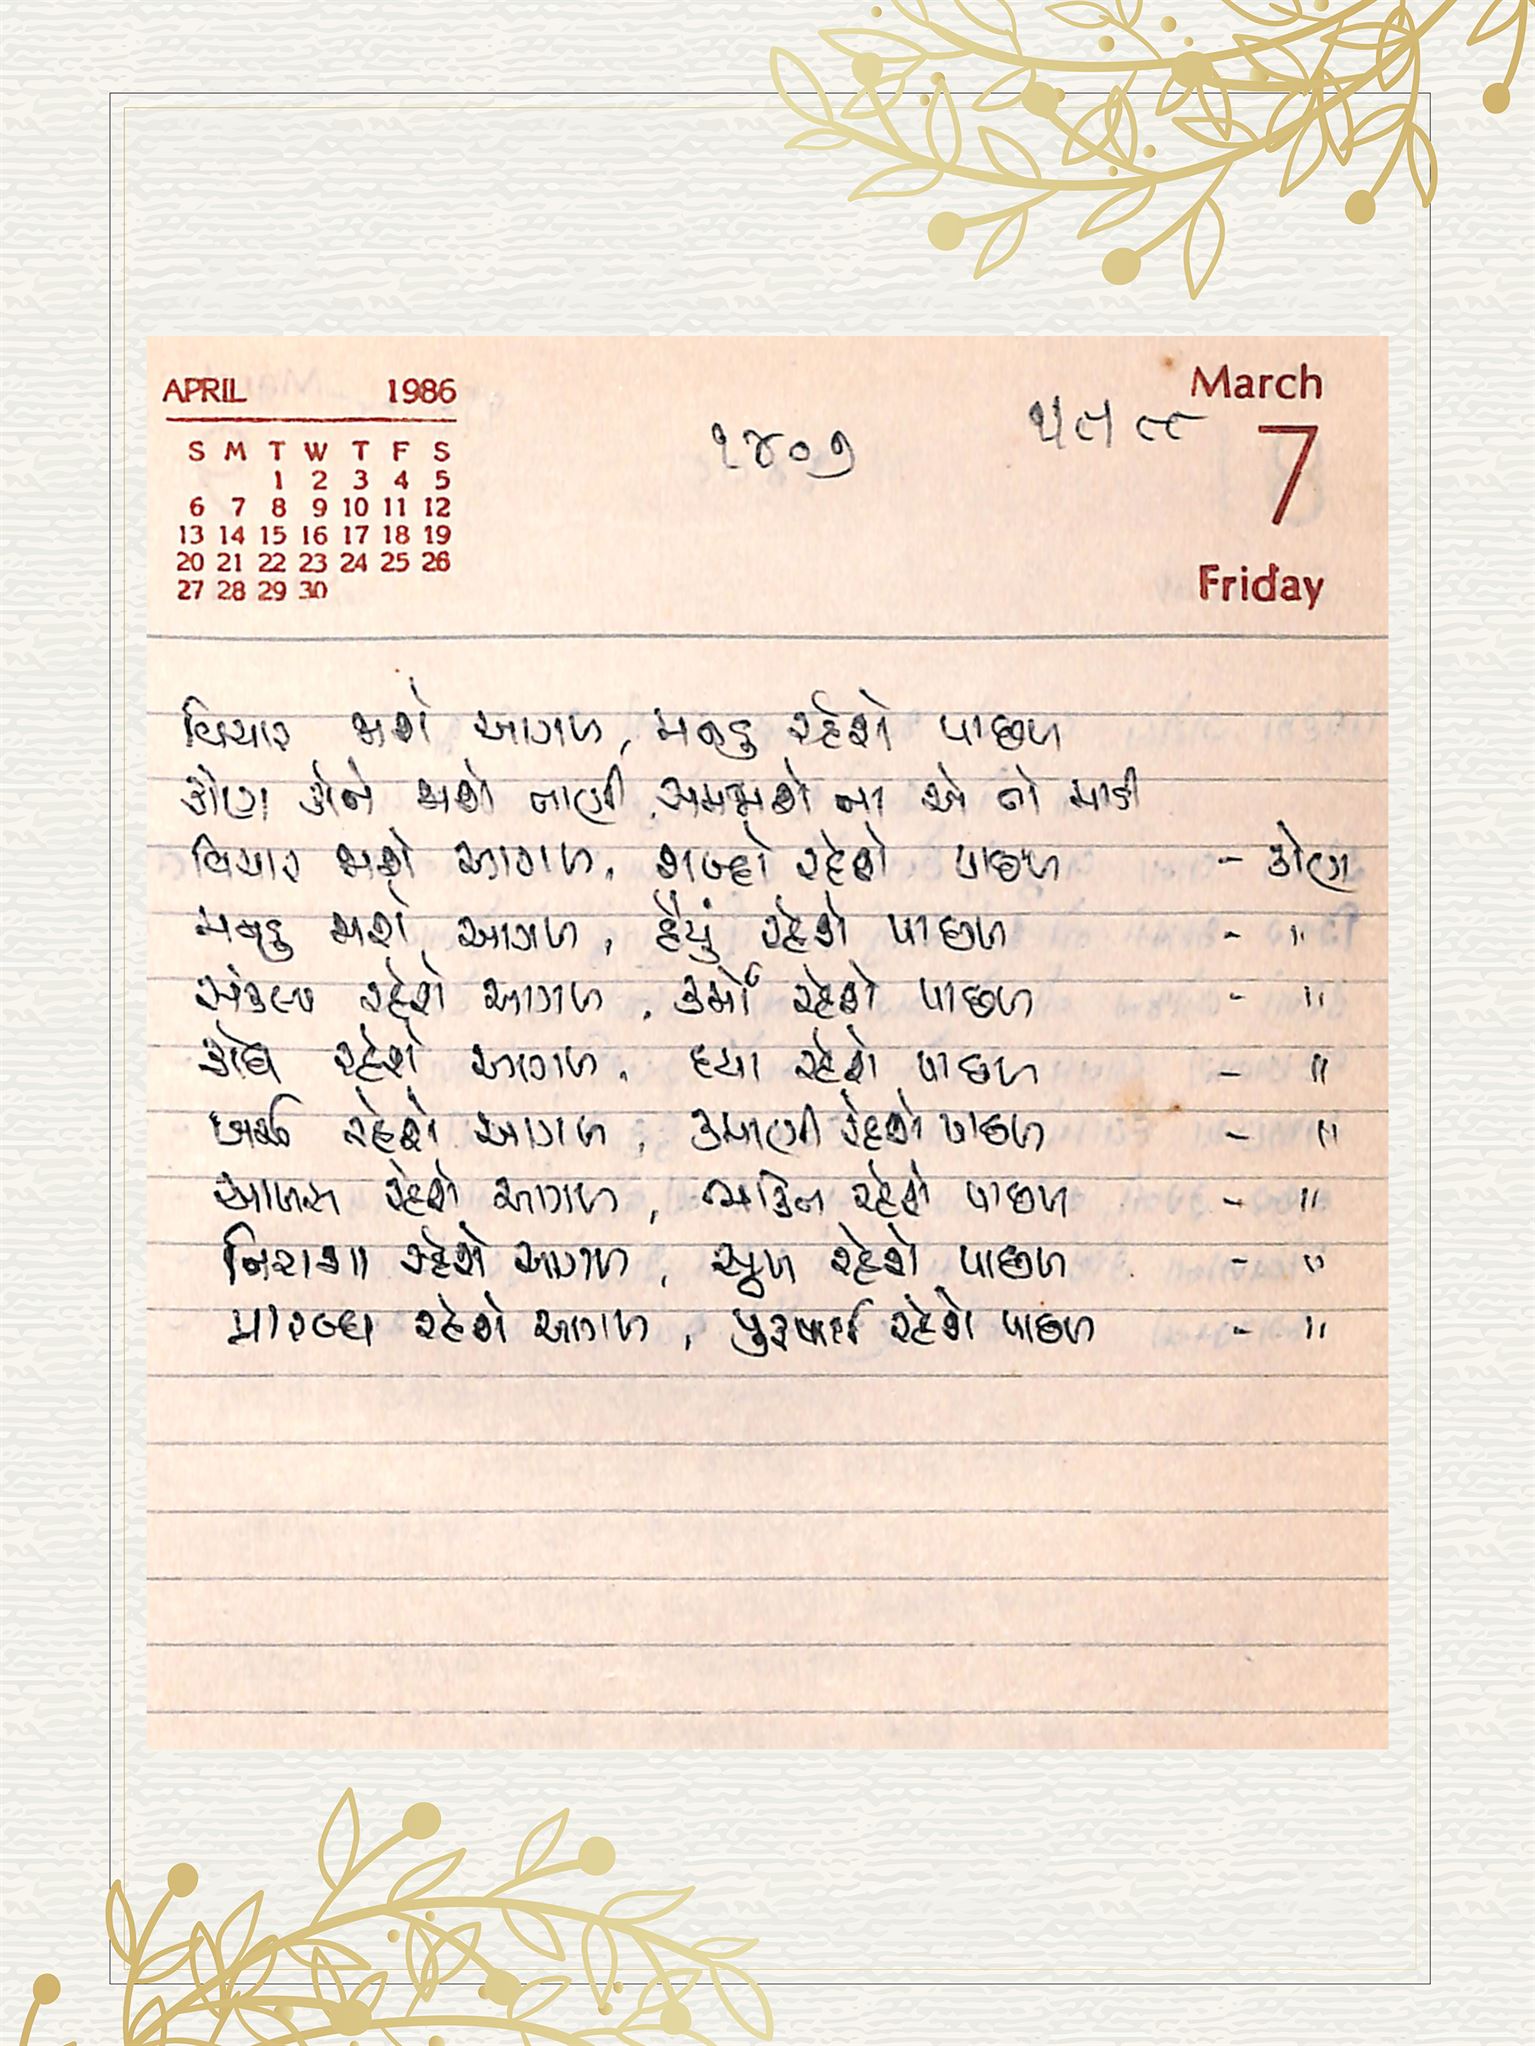 APRIL 1986
S M T W T F S
1 2 3 4 5
6 7 8 9 10 11 12
13 14 15 16 17 18 19
20 21 22 23 24 25 26
27 28 29 30
૧૪૦૭
March
7
Friday
વિચાર જાશે આગળ, મનડું રહેશે પાછળ
કોણ કોને જાશે તાણી, સમજાશે ના એ તો માડી
વિચાર જાશે આગળ, શબ્દો રહેશે પાછળ - કોણ
મનડું જાશે આગળ, હૈયું રહેશે પાછળ - "
સંકલ્પ રહેશે આગળ, કર્મો રહેશે પાછળ - "
ક્રોધ રહેશે આગળ, દયા રહેશે પાછળ - "
ખર્ચ રહેશે આગળ, કમાણી રહેશે પાછળ - "
આળસ રહેશે આગળ, ભક્તિ રહેશે પાછળ - "
નિરાશા રહેશે આગળ, સુખ રહેશે પાછળ - "
પ્રારબ્ધ રહેશે આગળ, પુરુષાર્થ રહેશે પાછળ - "